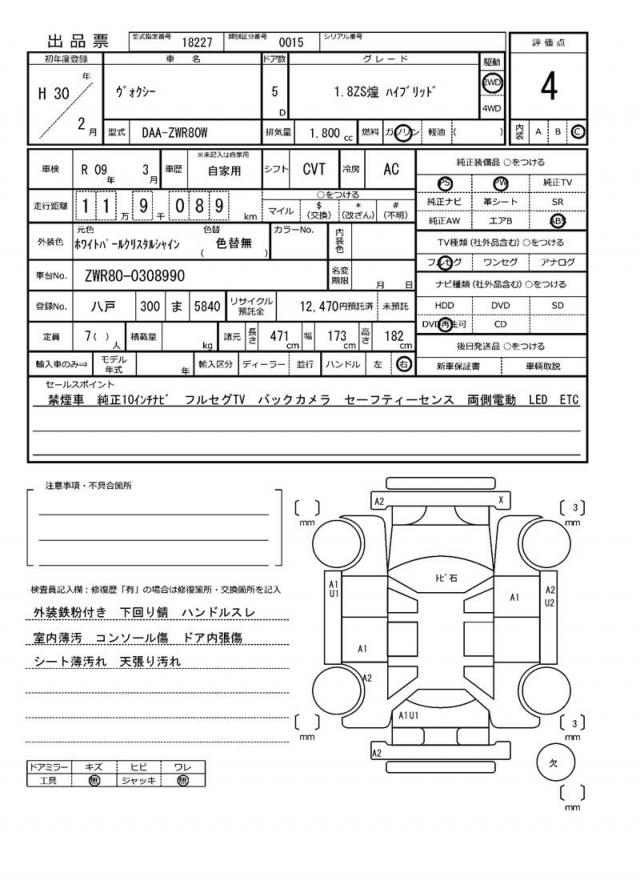 出品票 型式指定番号 18227 類別区分番号 0015 シリアル番号
評価点
4
内装 A B C
初年度登録 車名 ドア数 グレード 駆動
H 30 年 2 月 ヴォクシー 5 D 1.8ZS煌 ハイブリッド 2WD 4WD
型式 DAA-ZWR80W 排気量 1,800 cc 燃料 ガソリン 軽油 ( )
車検 R 09 年 3 月 車歴 ※未記入は自家用 自家用 シフト CVT 冷房 AC
走行距離 1 1 万 9 千 0 8 9 km
○をつける
マイル $ (交換) * (改ざん) # (不明)
外装色 元色 ホワイトパールクリスタルシャイン 色替 ( 色替無 ) カラーNo. 内装色
車台No. ZWR80-0308990 名変期限 月 日
登録No. 八戸 300 ま 5840 リサイクル預託金 12,470円預託済 未預託
定員 7( ) 人 積載量 kg 諸元 長さ 471 cm 幅 173 cm 高さ 182 cm
輸入車のみ⇒ モデル年式 年 輸入区分 ディーラー 並行 ハンドル 左 右
純正装備品 ○をつける
PS PW 純正TV
純正ナビ 革シート SR
純正AW エアB ABS
TV種類 (社外品含む) ○をつける
フルセグ ワンセグ アナログ
ナビ種類 (社外品含む) ○をつける
HDD DVD SD
DVD再生可 CD
後日発送品 ○をつける
新車保証書 車輌取説
セールスポイント
禁煙車 純正10インチナビ フルセグTV バックカメラ セーフティーセンス 両側電動 LED ETC
注意事項・不具合箇所
検査員記入欄：修復歴「有」の場合は修復箇所・交換箇所を記入
外装鉄粉付き 下回り錆 ハンドルスレ
室内薄汚 コンソール傷 ドア内張傷
シート薄汚れ 天張り汚れ
ドアミラー キズ ヒビ ワレ
工具 無 ジャッキ 無
A2 X
[ ] mm
[ 3 ] mm
トビ石
A1
U1
A1
A2
U2
A1
A2
A1U1
[ ] mm
[ 3 ] mm
A2
欠
[ ] mm